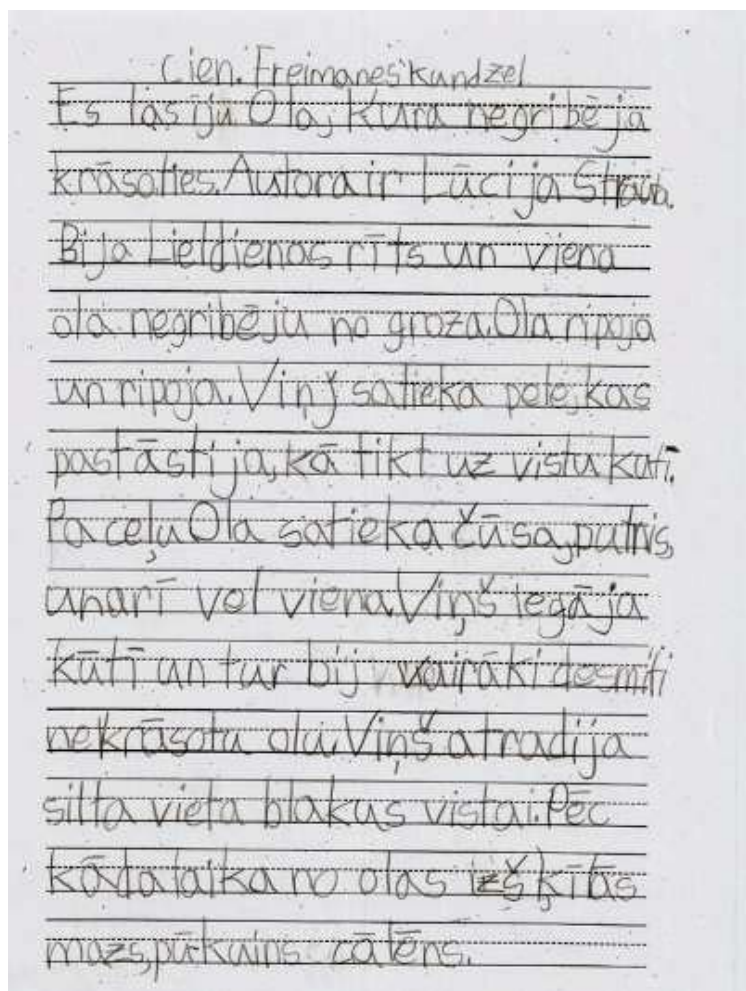 Cien. Freimanes kundze!
Es lasīju Ola, kura negribēja
krāsoties. Autora ir Lūcija Strauta.
Bija Lieldienas rīts un viena
ola negribēju no groza. Ola ripoja
un ripoja. Viņš satieka pele, kas
pastāstija, kā tikt uz vistu kūti.
Pa ceļu Ola satieka čūsa, putnis,
un arī vel viena. Viņš iegāja
kūtī un tur bij vairāki desmiti
nekrāsotu olu. Viņš atradija
silta vieta blakus vistai. Pēc
kāda laika no olas izšķītās
mazs, pūkains cālēns.